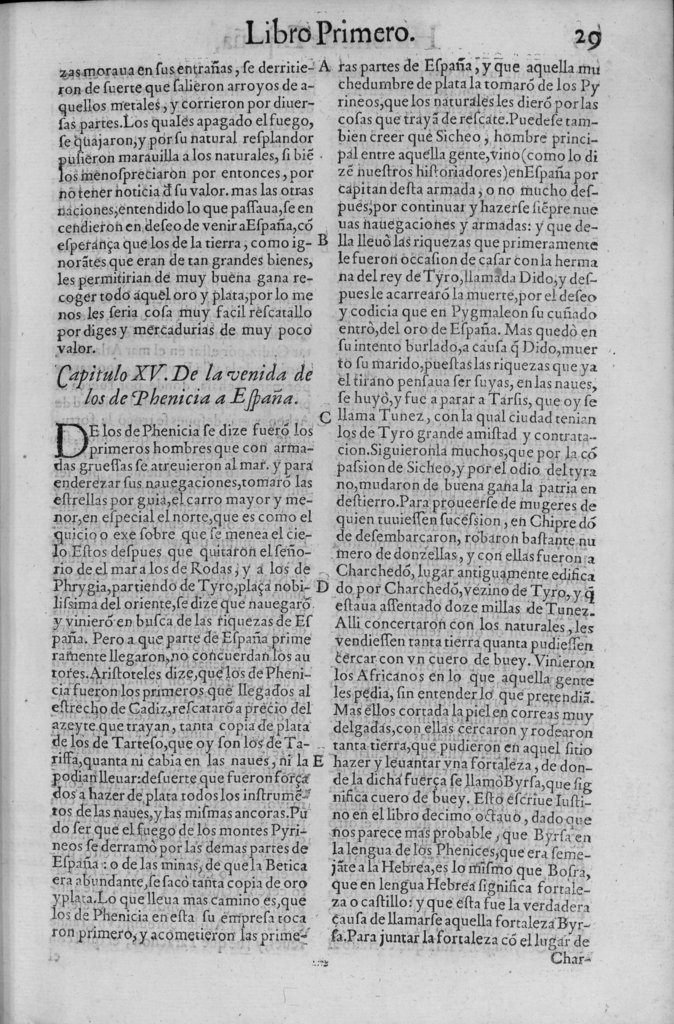 Libro Primero.
29
zas moraua en sus entrañas, se derritie-
ron de suerte que salieron arroyos de a-
quellos metales, y corrieron por diuer-
sas partes. Los quales apagado el fuego,
se quajaron, y por su natural resplandor
pusieron marauilla a los naturales, si biē
los menospreciaron por entonces, por
no tener noticia đ su valor. mas las otras
naciones, entendido lo que passaua, se en
cendieron en deseo de venir a España, cō
esperança que los de la tierra, como ig-
norātes que eran de tan grandes bienes,
les permitirian de muy buena gana re-
coger todo aquel oro y plata, por lo me
nos les seria cosa muy facil rescatallo
por diges y mercadurias de muy poco
valor.
Capitulo XV. De la venida de
los de Phenicia a España.
DE los de Phenicia se dize fuerō los
primeros hombres que con arma-
das gruessas se atreuieron al mar. y para
enderezar sus nauegaciones, tomarō las
estrellas por guia, el carro mayor y me-
nor, en especial el norte, que es como el
quicio o exe sobre que se menea el cie-
lo. Estos despues que quitaron el seño-
rio de el mar a los de Rodas, y a los de
Phrygia, partiendo de Tyro, plaça nobi-
lissima del oriente, se dize que nauegarō
y vinierō en busca de las riquezas de Es
paña. Pero a que parte de España prime
ramente llegaron, no concuerdan los au
tores. Aristoteles dize, que los de Pheni-
cia fueron los primeros que llegados al
estrecho de Cadiz, rescatarō a precio del
azeyte que trayan, tanta copia de plata
de los de Tarteso, que oy son los de Ta-
riffa, quanta ni cabia en las naues, ni la
podian lleuar: de suerte que fueron força
dos a hazer de plata todos los instrumē-
tos de las naues, y las mismas ancoras. Pu
do ser que el fuego de los montes Pyri-
neos se derramo por las demas partes de
España: o de las minas, de que la Betica
era abundante, se sacō tanta copia de oro
y plata. Lo que lleua mas camino es, que
los de Phenicia en esta su empresa toca
ron primero, y acometieron las prime-
A
B
C
D
E
ras partes de España, y que aquella mu
chedumbre de plata la tomarō de los Py
rineos, que los naturales les dierō por las
cosas que trayā de rescate. Puedese tam-
bien creer que Sicheo, hombre princi-
pal entre aquella gente, vino (como lo di
zē nuestros historiadores) en España por
capitan desta armada, o no mucho des-
pues, por continuar y hazerse siēpre nue
uas nauegaciones y armadas: y que de-
lla lleuō las riquezas que primeramente
le fueron occasion de casar con la herma
na del rey de Tyro, llamada Dido, y des-
pues le acarrearō la muerte, por el deseo
y codicia que en Pygmaleon su cuñado
entrō, del oro de España. Mas quedō en
su intento burlado, a causa q̄ Dido, muer
to su marido, puestas las riquezas que ya
el tirano pensaua ser suyas, en las naues,
se huyō, y fue a parar a Tarsis, que oy se
llama Tunez, con la qual ciudad tenian
los de Tyro grande amistad y contrata-
cion. Siguieronla muchos, que por la cō
passion de Sicheo, y por el odio del tyra
no, mudaron de buena gana la patria en
destierro. Para proueerse de mugeres de
quien tuuiessen sucession, en Chipre dō
de desembarcaron, robaron bastante nu
mero de donzellas, y con ellas fueron a
Charchedō, lugar antiguamente edifica
do por Charchedō, vezino de Tyro, y q̄
estaua assentado doze millas de Tunez.
Alli concertaron con los naturales, les
vendiessen tanta tierra quanta pudiessen
cercar con vn cuero de buey. Vinieron
los Africanos en lo que aquella gente
les pedia, sin entender lo que pretendiā.
Mas ellos cortada la piel en correas muy
delgadas, con ellas cercaron y rodearon
tanta tierra, que pudieron en aquel sitio
hazer y leuantar vna fortaleza, de don-
de la dicha fuerça se llamō Byrsa, que sig
nifica cuero de buey. Esto escriue Iusti-
no en el libro decimo octauo, dado que
nos parece mas probable, que Byrsa en
la lengua de los Phenices, que era seme-
jāte a la Hebrea, es lo mismo que Bosra,
que en lengua Hebrea significa fortale-
za o castillo: y que esta fue la verdadera
causa de llamarse aquella fortaleza Byr-
sa. Para juntar la fortaleza cō el lugar de
Char-